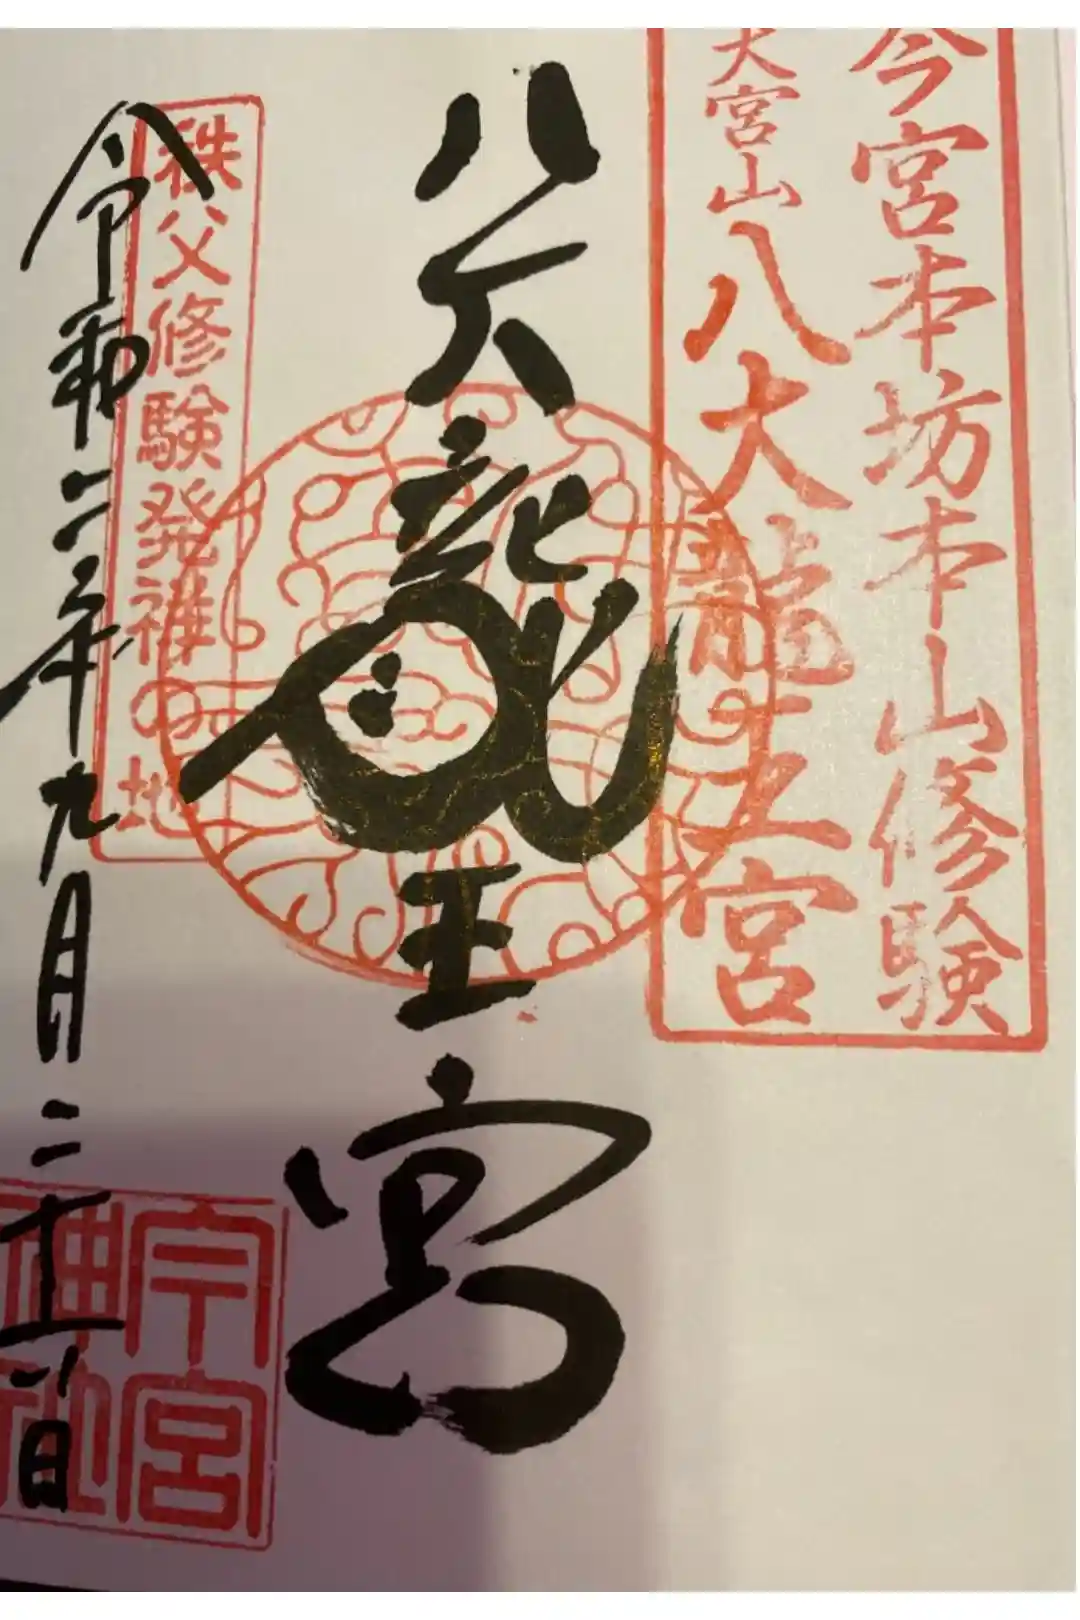 今宮本坊本山修験
大宮山八大龍王宮
八大龍王宮
秩父修験発祥之地
令和六年九月二十六日
今宮
神社